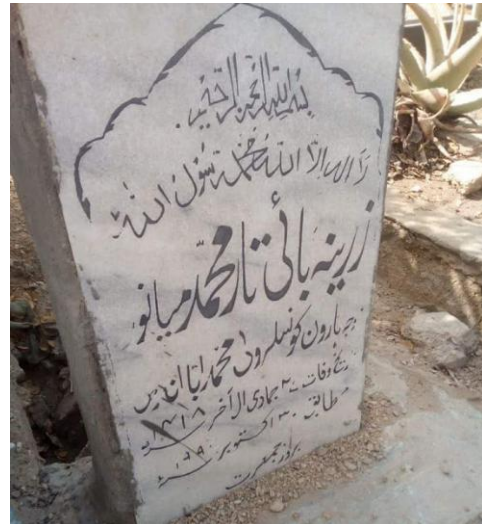 بسم اللہ الرحمن الرحیم
لا الہ الا اللہ محمد رسول اللہ
زرینہ بائی تار محمد میانور
ہارون کونسلرون محمد
تاریخ وفات ۲ جمادی الآخر ۱۴۱۸
مطابق ۳ اکتوبر ۱۹۹
بروز جمعرت